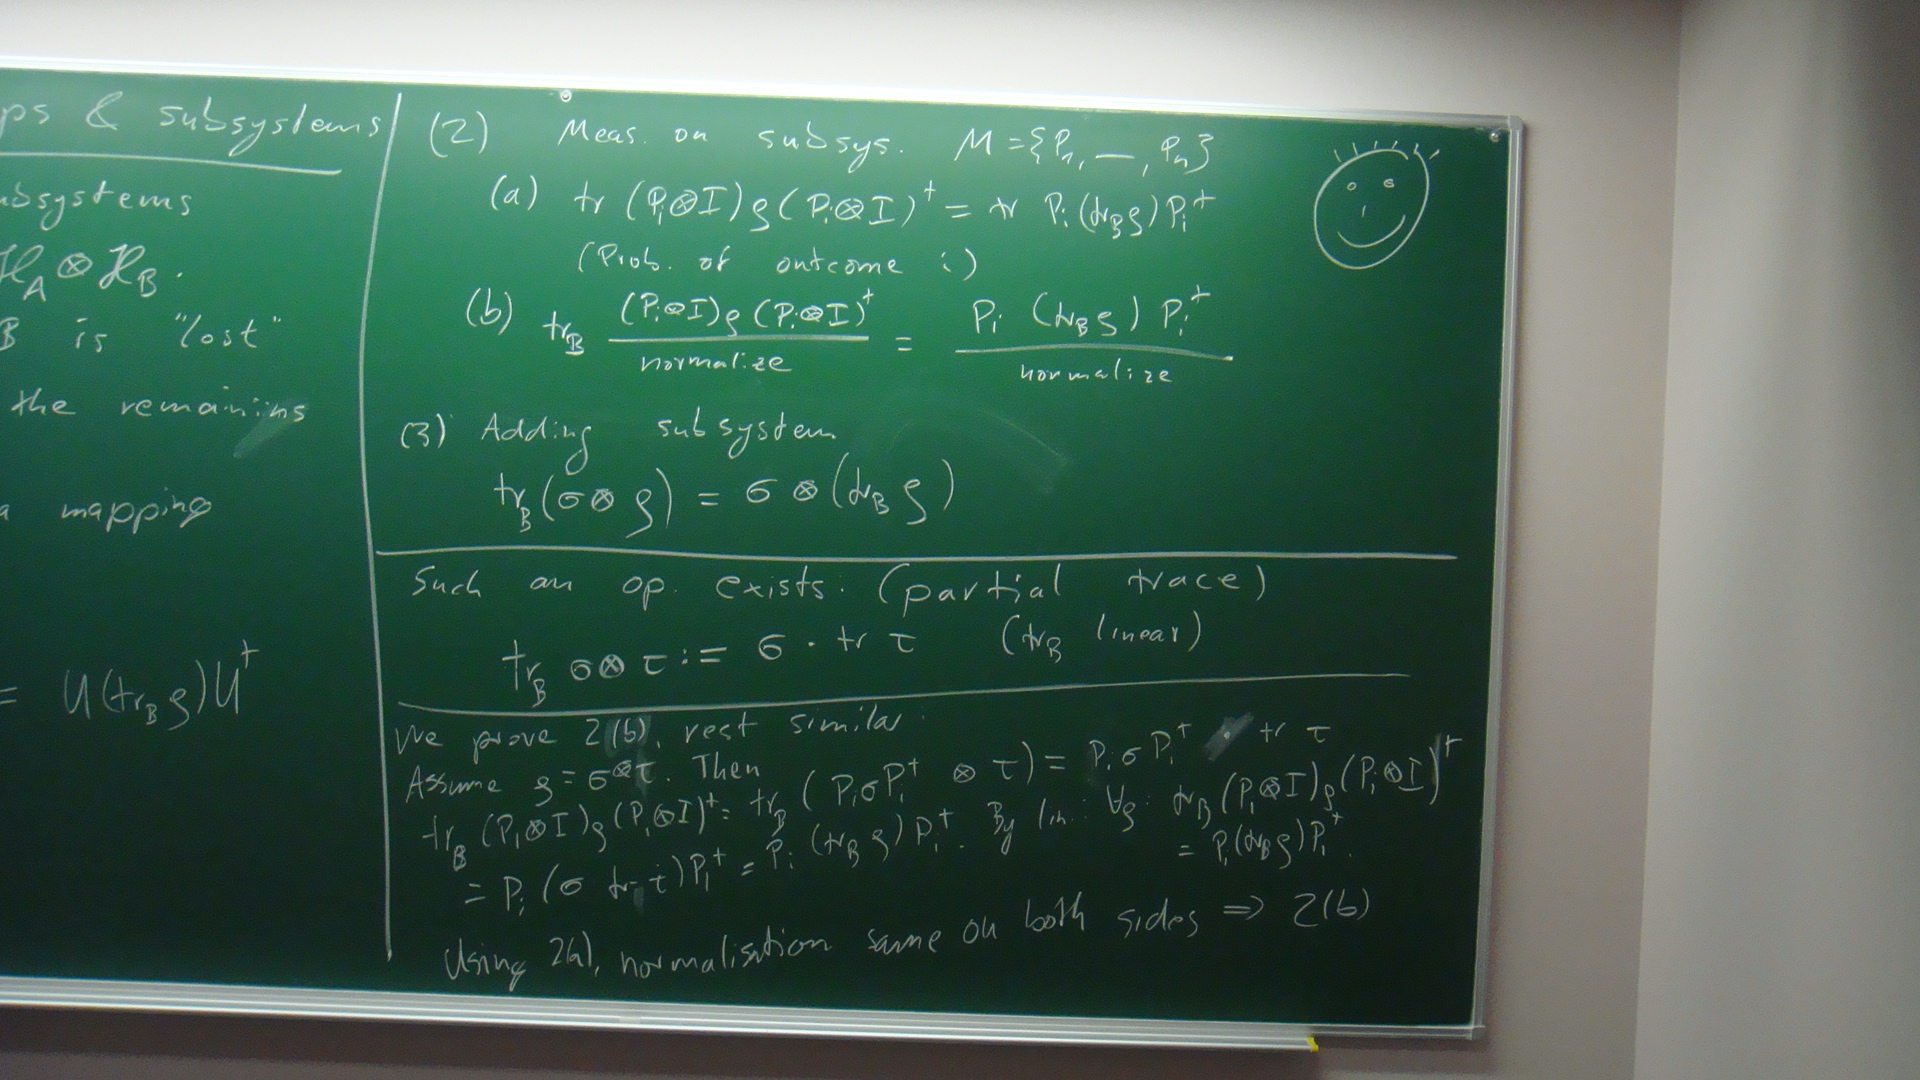 ps & subsystems
ubsystems
ℋ_A ⊗ ℋ_B.
B is "lost"
the remaining
a mapping
= U(tr_B ρ)U†
(2) Meas. on subsys. M = {P₁, —, Pₙ}
(a) tr (Pᵢ⊗I)ρ(Pᵢ⊗I)† = tr Pᵢ(tr_B ρ)Pᵢ†
(Prob. of outcome i)
(b) tr_B (Pᵢ⊗I)ρ(Pᵢ⊗I)† / normalize = Pᵢ (tr_B ρ) Pᵢ† / normalize
(3) Adding subsystem
tr_B(σ⊗ρ) = σ⊗(tr_B ρ)
Such an op. exists: (partial trace)
tr_B σ⊗τ := σ · tr τ (tr_B linear)
We prove 2(b), rest similar.
Assume ρ = σ⊗τ. Then
tr_B (Pᵢ⊗I)ρ(Pᵢ⊗I)† = tr_B (PᵢσPᵢ† ⊗ τ) = PᵢσPᵢ† · tr τ
= Pᵢ(σ tr τ)Pᵢ† = Pᵢ (tr_B ρ) Pᵢ†. By lin.: ∀ρ: tr_B (Pᵢ⊗I)ρ(Pᵢ⊗I)†
= Pᵢ(tr_B ρ)Pᵢ†.
Using 2(a), normalisation same on both sides ⇒ 2(b)